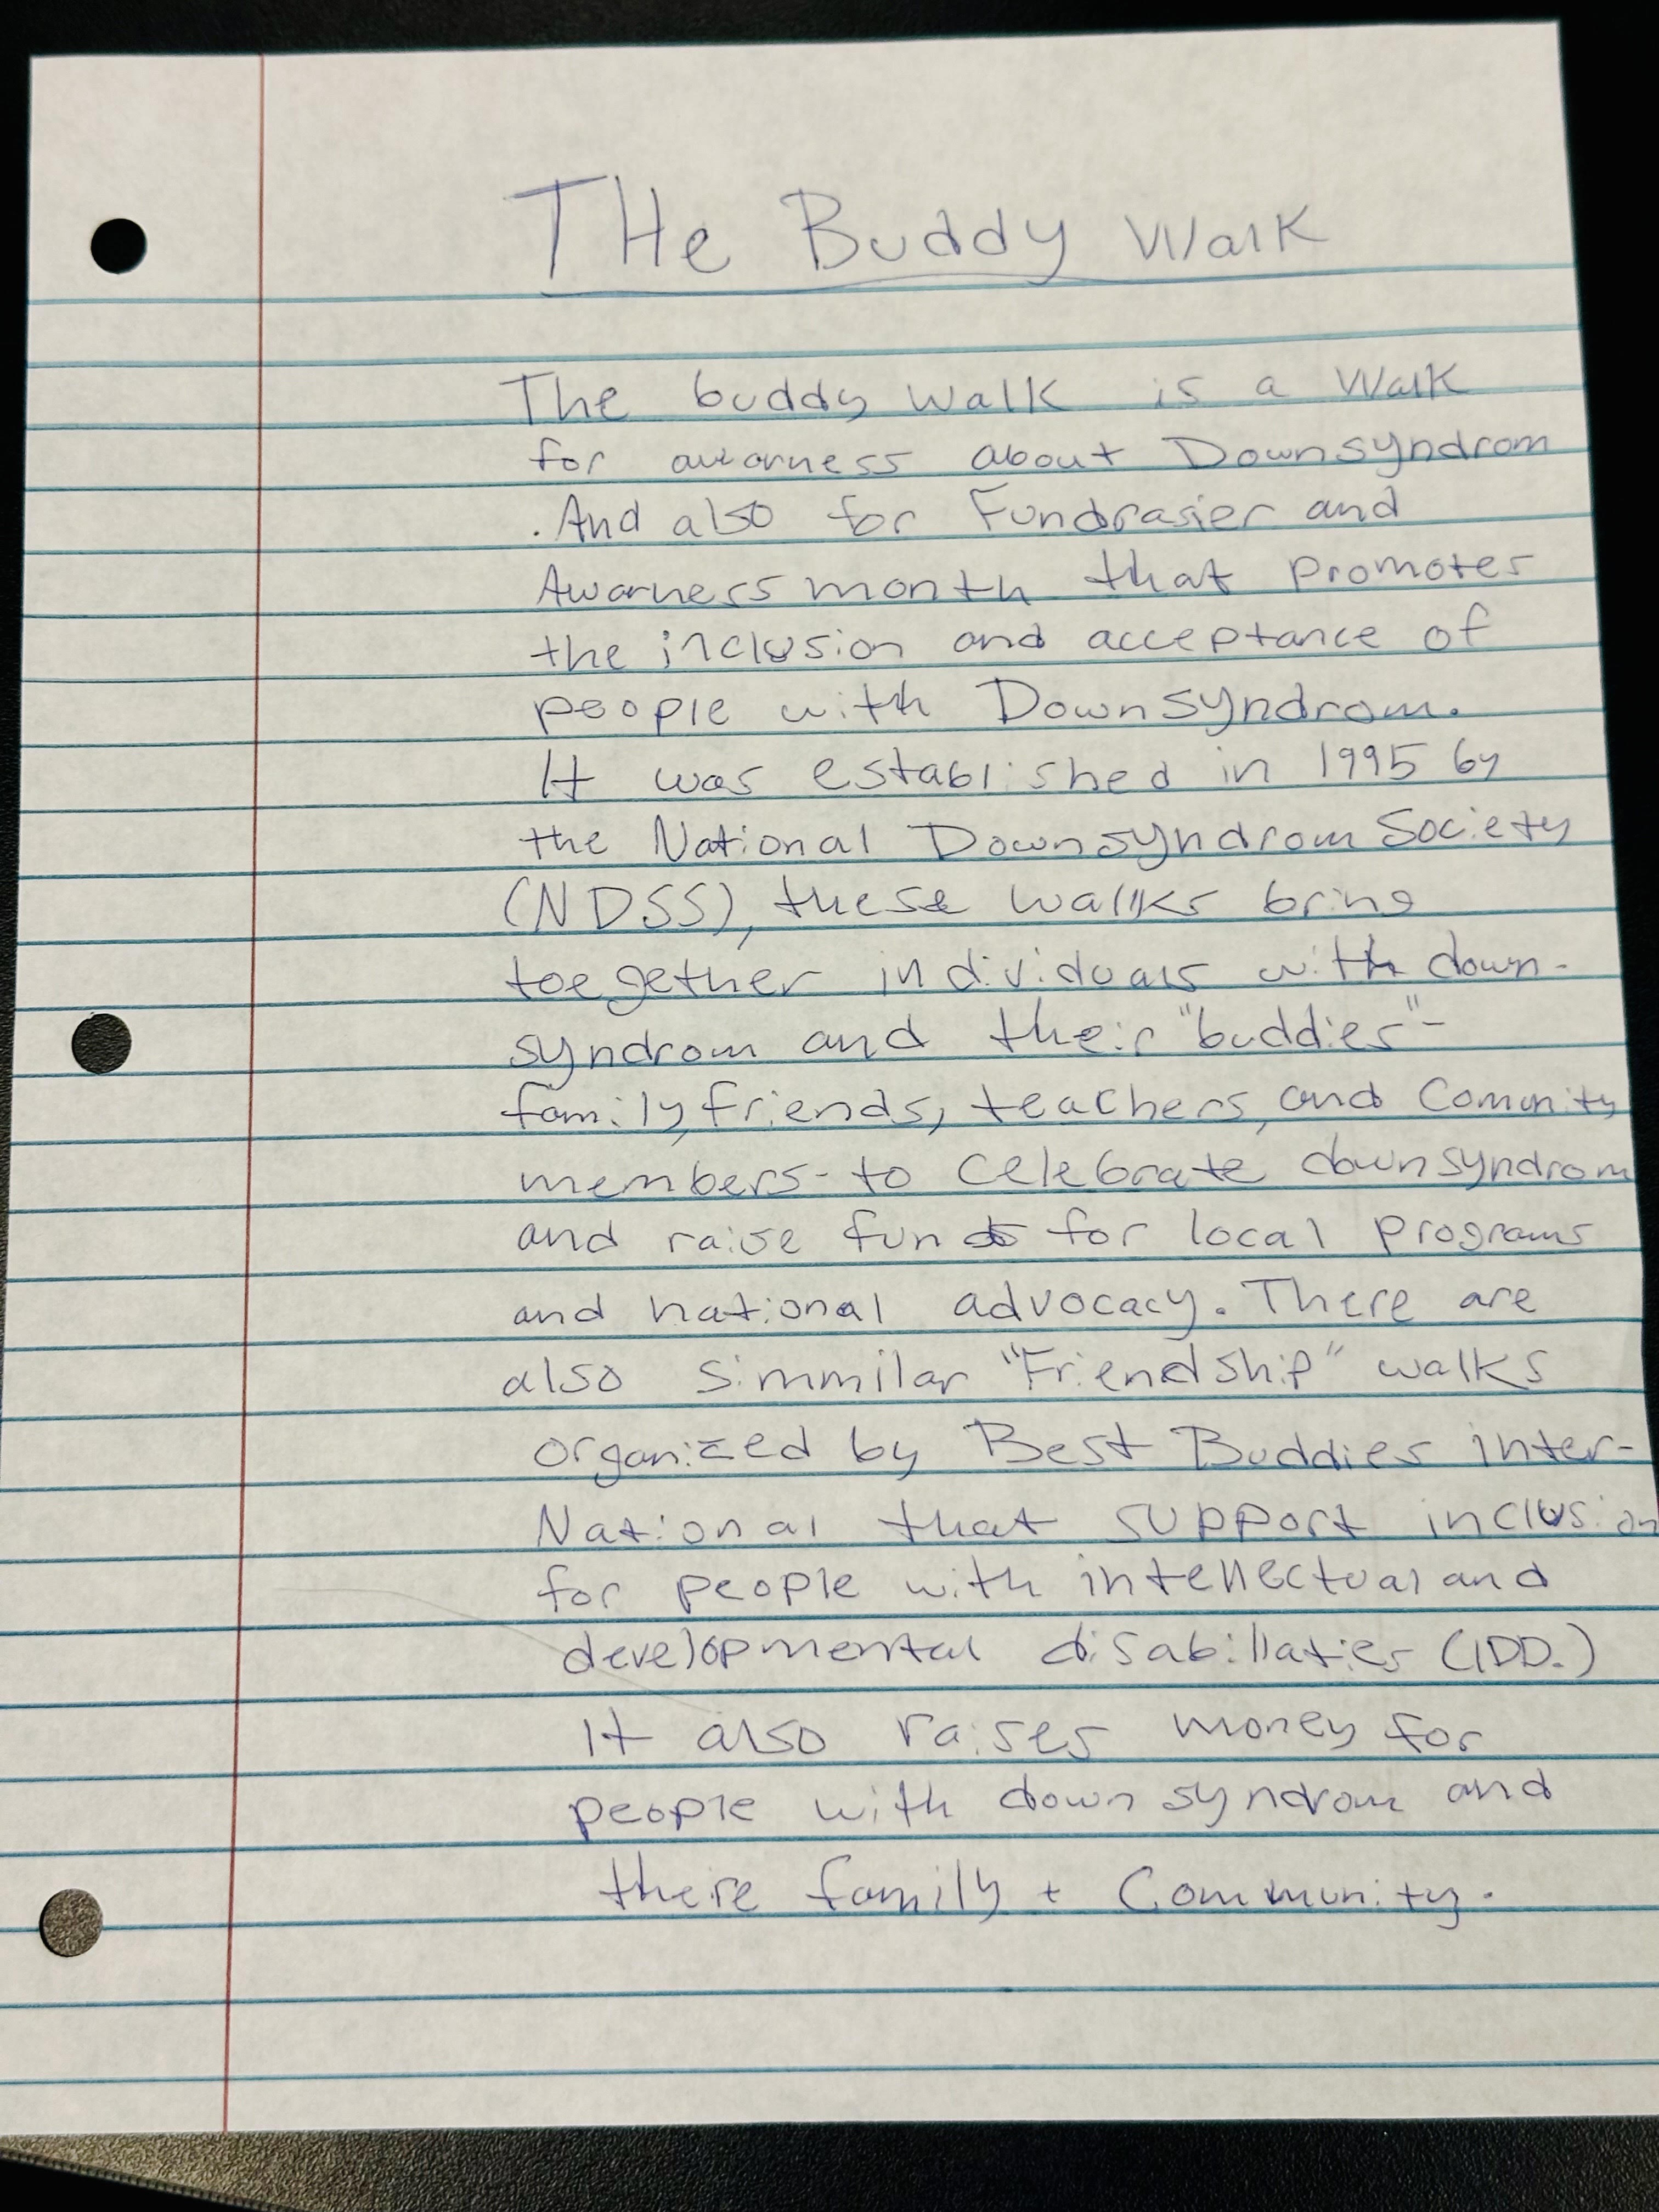 THe Buddy Walk
The buddy walk is a Walk
for awarness about Downsyndrom
. And also for Fundrasier and
Awarness month that promotes
the inclusion and acceptance of
people with Downsyndrom.
It was established in 1995 by
the National Downsyndrom Society
(NDSS), these walks bring
toegether individuals with down-
syndrom and their "buddies"-
family, friends, teachers, and Comunity
members- to celebrate downsyndrom
and raise funds for local programs
and national advocacy. There are
also simmilar "Friendship" walks
organized by Best Buddies inter-
National that support inclusion
for people with intellectual and
developmental disabillaties (IDD.)
It also raises money for
people with down syndrom and
there family + Community.